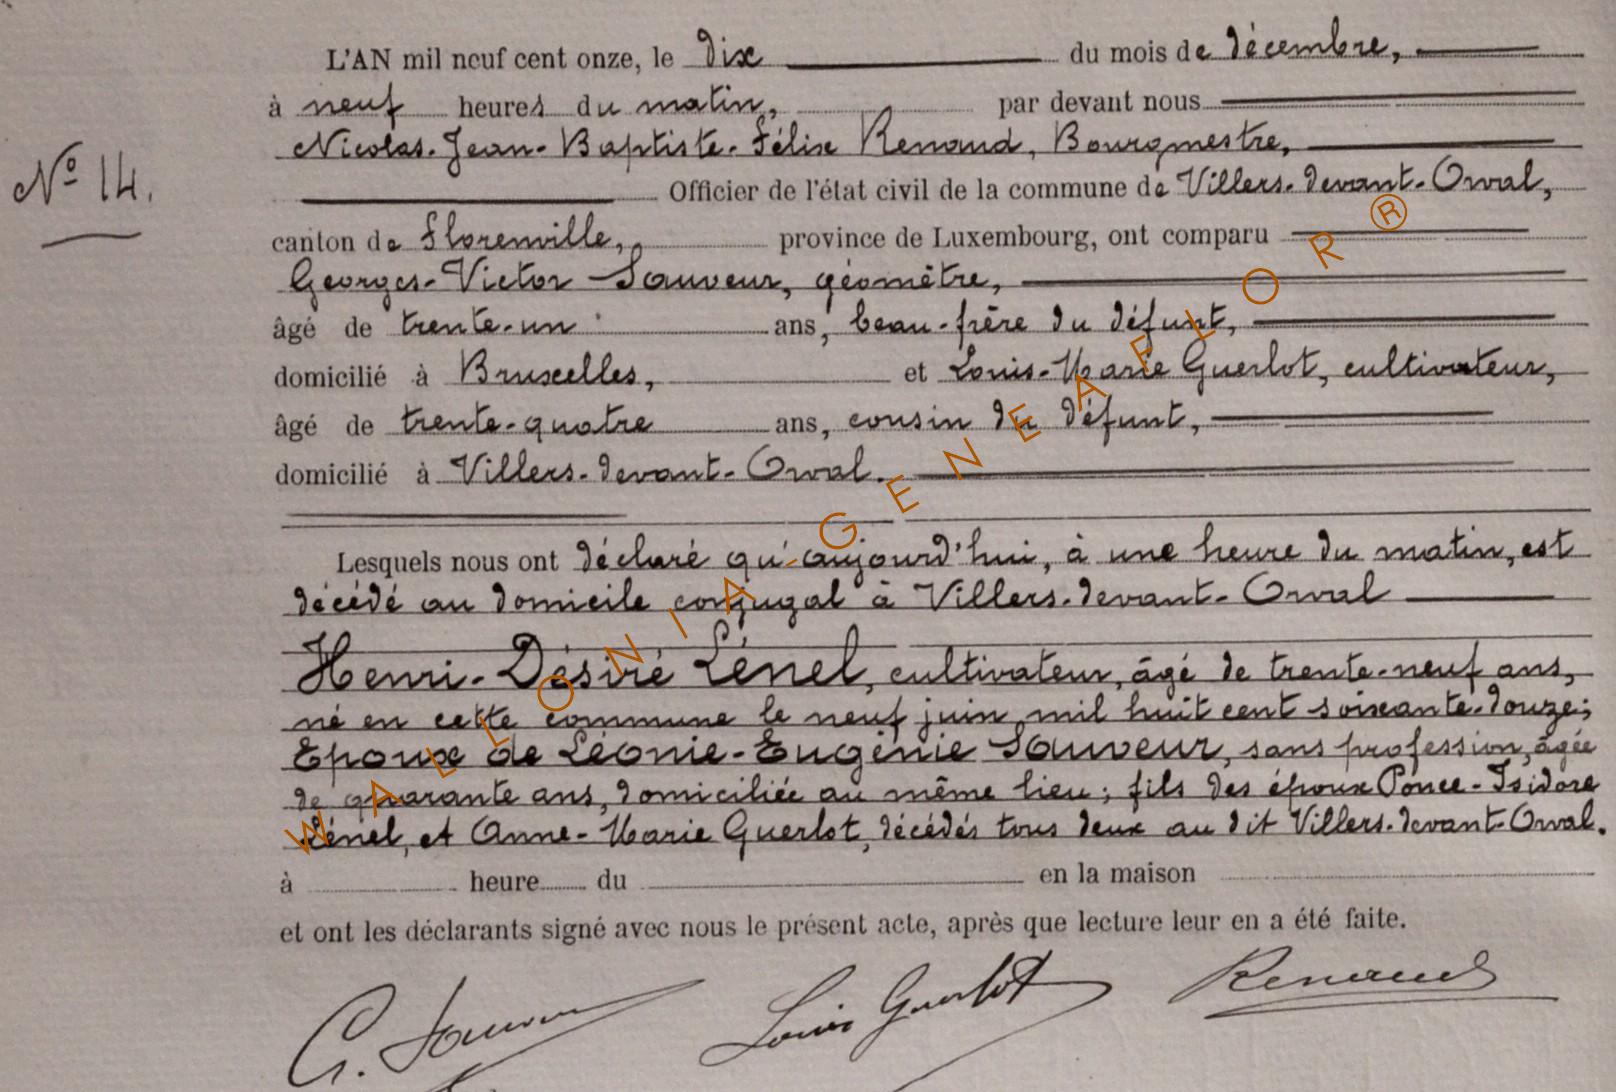 L'AN mil neuf cent onze, le dix du mois de décembre,
à neuf heures du matin, par devant nous
Nicolas-Jean-Baptiste-Félix Renaud, Bourgmestre,
Nº 14.
Officier de l'état civil de la commune de Villers-devant-Orval,
canton de Florenville, province de Luxembourg, ont comparu
Georges-Victor Sauveur, géomètre,
âgé de trente-un ans, beau-frère du défunt,
domicilié à Bruxelles, et Louis-Marie Guerlot, cultivateur,
âgé de trente-quatre ans, cousin du défunt,
domicilié à Villers-devant-Orval.
Lesquels nous ont déclaré qu'aujourd'hui, à une heure du matin, est
décédé au domicile conjugal à Villers-devant-Orval
Henri-Désiré Lénel, cultivateur, âgé de trente-neuf ans,
né en cette commune le neuf juin mil huit cent soixante-douze;
Epoux de Léonie-Eugénie Sauveur, sans profession, âgée
de quarante ans, domiciliée au même lieu; fils des époux Ponce-Isidore
Lénel, et Anne-Marie Guerlot, décédés tous deux au dit Villers-devant-Orval.
à heure du en la maison
et ont les déclarants signé avec nous le présent acte, après que lecture leur en a été faite.
G. Sauveur Louis Guerlot Renaud
WALLONIA-GENEAFLOR®